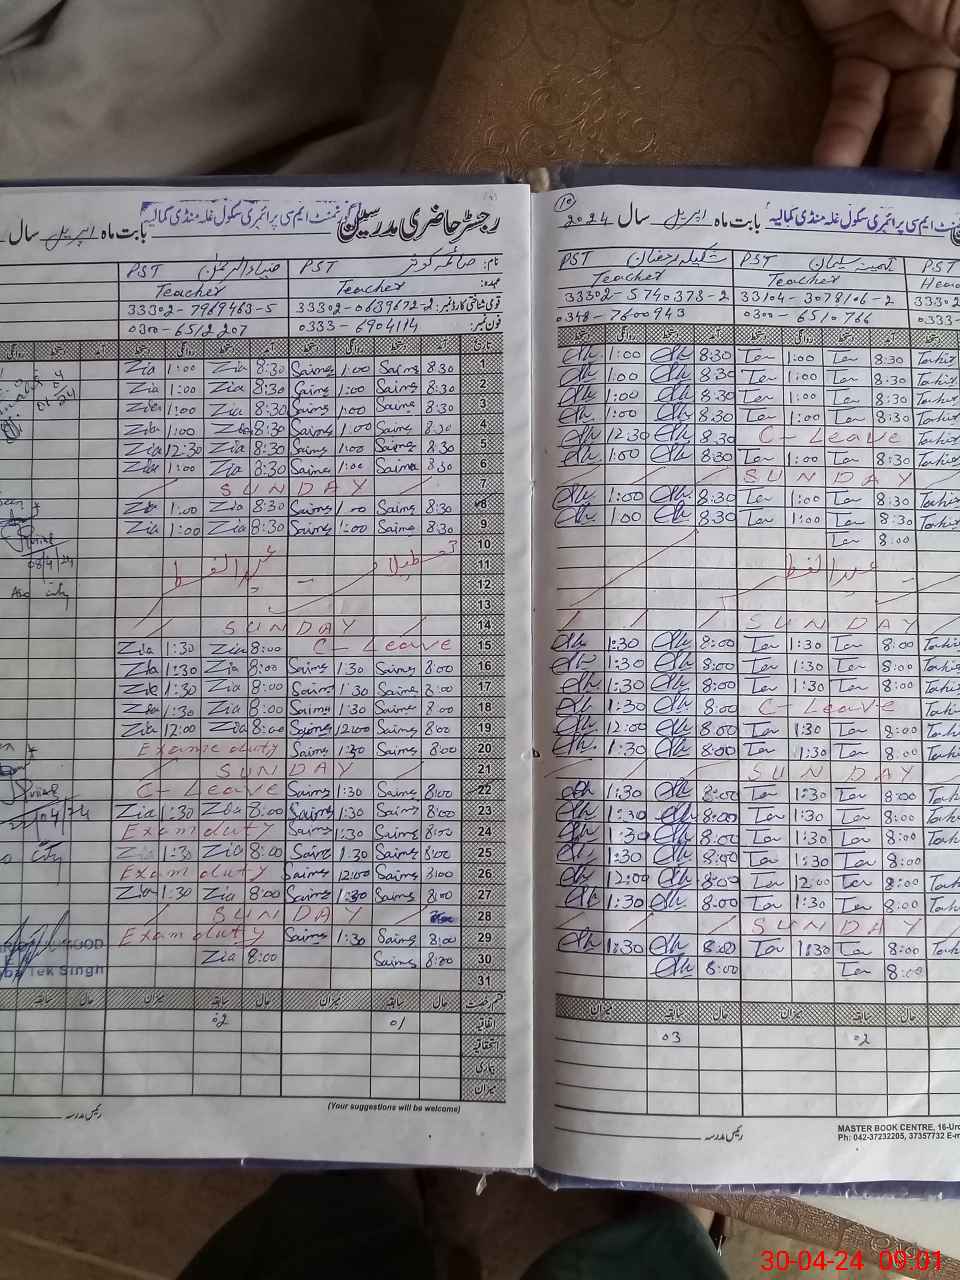 رجسٹر حاضری مدرسین گورنمنٹ ایم سی پرائمری سکول غلہ منڈی کمالیہ بابت ماہ اپریل سال
نام: صائمہ کوثر PST ضیاء الرحمٰن PST
عہدہ: Teacher Teacher
قومی شناختی کارڈ نمبر: 33302-0639672-2 33302-7969463-5
فون نمبر: 0333-6904114 0300-6512207
تاریخ آمد دستخط روانگی دستخط آمد دستخط روانگی دستخط آمد دستخط روانگی
1 8:30 Saima 1:00 Saima 8:30 Zia 1:00 Zia
2 8:30 Saima 1:00 Saima 8:30 Zia 1:00 Zia
3 8:30 Saima 1:00 Saima 8:30 Zia 1:00 Zia
4 8:30 Saima 1:00 Saima 8:30 Zia 1:00 Zia
5 8:30 Saima 1:00 Saima 8:30 Zia 12:30 Zia
6 8:30 Saima 1:00 Saima 8:30 Zia 1:00 Zia
7 SUNDAY
8 8:30 Saima 1:00 Saima 8:30 Zia 1:00 Zia
9 8:30 Saima 1:00 Saima 8:30 Zia 1:00 Zia
10
11 تعطیل عید الفطر
12
13
14 SUNDAY
15 C-Leave 8:00 Zia 1:30 Zia
16 8:00 Saima 1:30 Saima 8:00 Zia 1:30 Zia
17 8:00 Saima 1:30 Saima 8:00 Zia 1:30 Zia
18 8:00 Saima 1:30 Saima 8:00 Zia 1:30 Zia
19 8:00 Saima 12:00 Saima 8:00 Zia 12:00 Zia
20 8:00 Saima 1:30 Saima Examic duty
21 SUNDAY
22 8:00 Saima 1:30 Saima C-Leave
23 8:00 Saima 1:30 Saima 8:00 Zia 1:30 Zia
24 8:00 Saima 1:30 Saima Exam duty
25 8:00 Saima 1:30 Saima 8:00 Zia 1:30 Zia
26 8:00 Saima 12:00 Saima Exam duty
27 8:00 Saima 1:30 Saima 8:00 Zia 1:30 Zia
28 SUNDAY
29 8:00 Saima 1:30 Saima Exam duty
30 8:00 Saima 8:00 Zia
31
قسم رخصت حال سابقہ میزان حال سابقہ میزان حال سابقہ
اتفاقیہ 01 02
استحقاقیہ
بیماری
میزان
(Your suggestions will be welcome)
رئیس مدرسہ
08/4/24
22/04/24
Tek Singh
10
گورنمنٹ ایم سی پرائمری سکول غلہ منڈی کمالیہ بابت ماہ اپریل سال 2024
PST تہمینہ سلیمان PST شکیلہ رمضان PST
Teacher Teacher
33302 33104-3078106-2 33302-5740378-2
0333- 0300-6510766 0348-7600943
آمد دستخط روانگی دستخط آمد دستخط روانگی دستخط
Tahir 8:30 Tan 1:00 Tan 8:30 1:00
Tahir 8:30 Tan 1:00 Tan 8:30 1:00
Tahir 8:30 Tan 1:00 Tan 8:30 1:00
Tahir 8:30 Tan 1:00 Tan 8:30 1:00
Tahir C-Leave 8:30 12:30
Tahir 8:30 Tan 1:00 Tan 8:30 1:00
SUNDAY
Tahir 8:30 Tan 1:00 Tan 8:30 1:00
Tahir 8:30 Tan 1:00 Tan 8:30 1:00
8:00 Tan
عید الفطر
SUNDAY
Tahir 8:00 Tan 1:30 Tan 8:00 1:30
Tahir 8:00 Tan 1:30 Tan 8:00 1:30
Tahir 8:00 Tan 1:30 Tan 8:00 1:30
Tahir C-Leave 8:00 1:30
Tahir 8:00 Tan 1:30 Tan 8:00 12:00
8:00 Tan 1:30 Tan 8:00 1:30
SUNDAY
Tahir 8:00 Tan 1:30 Tan 8:00 1:30
Tahir 8:00 Tan 1:30 Tan 8:00 1:30
Tahir 8:00 Tan 1:30 Tan 8:00 1:30
8:00 Tan 1:30 Tan 8:00 1:30
Tahir 8:00 Tan 12:00 Tan 8:00 12:00
Tahir 8:00 Tan 1:30 Tan 8:00 1:30
SUNDAY
Tahir 8:00 Tan 1:30 Tan 8:00 1:30
8:00 Tan 8:00
حال سابقہ میزان حال سابقہ میزان
02 03
رئیس مدرسہ
MASTER BOOK CENTRE, 16-Urd
Ph: 042-37232205, 37357732 E-m
30-04-24 09:01